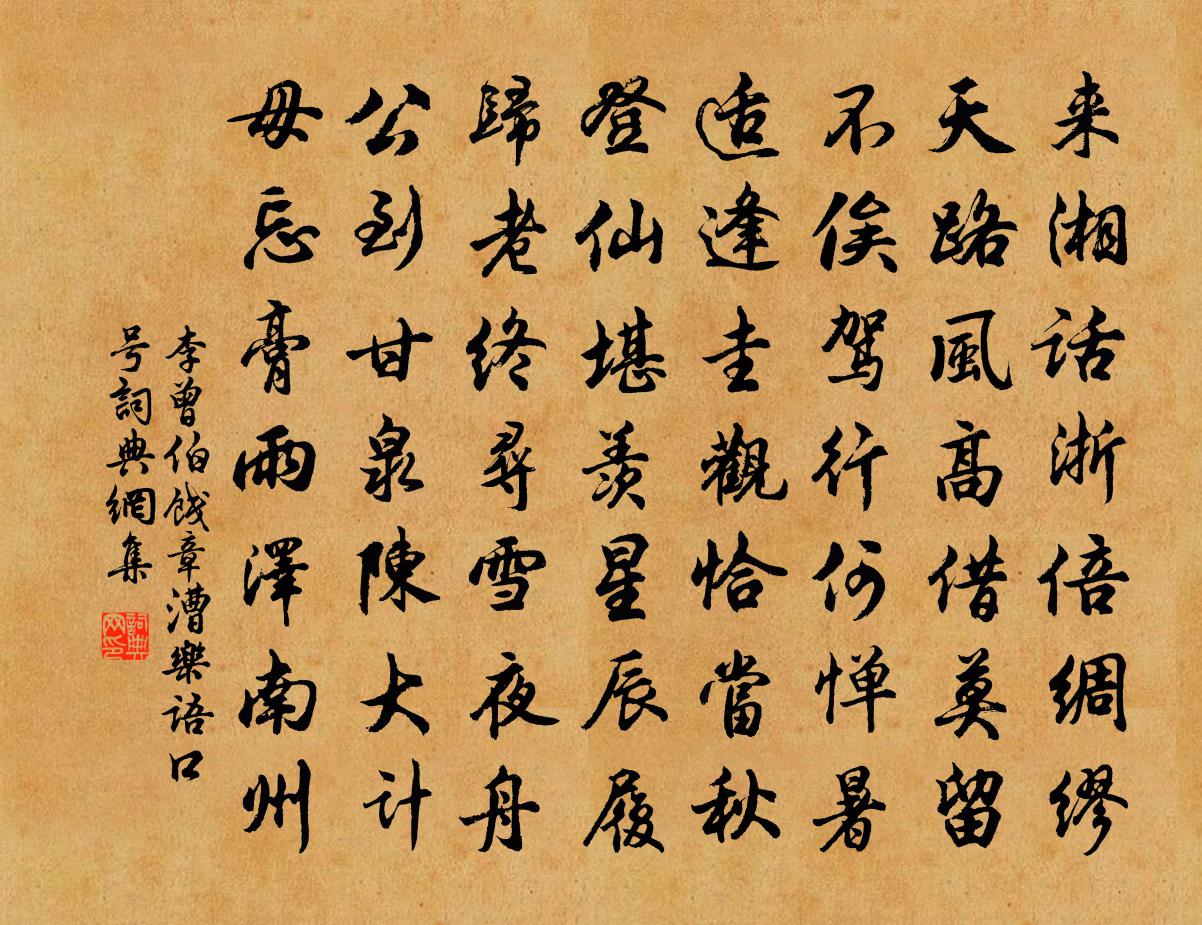 来湘話浙倍綢繆
天路風高借莫留
不俟駕行何惮暑
适逢圭觀恰當秋
登仙堪羨星辰履
歸老終尋雪夜舟
公到甘泉陳大計
毋忘膏雨澤南州
李曾伯餞章漕樂語口
号詞典網集
詞典网印